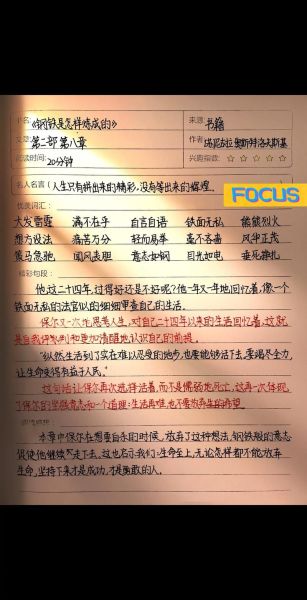 书名:《钢铁是怎样炼成的》 来源: 书籍
文章: 第二部第八章 作者: 尼古拉·奥斯特洛夫斯基
阅读时间: 20分钟 兴趣指数: ☆☆☆☆☆
名人名言(人生只有拼出来的精彩,没有等出来的辉煌
FOCUS
优美词汇:
大发雷霆 满不在乎 自言自语 铁面无私 熊熊烈火
想方设法 痛苦万分 轻而易举 毫不吝啬 风华正茂
策马急驰 国风表胆 意志如钢 目光如电
精彩句段:
他这二十四年,过得好还是不好呢?他一年又一年地回忆着,像一个
铁面无私的法官似的细细审查自己的生活。
保尔又一次地思考人生,对自己二十四年以来的生活回忆着,这就
是自我评判到和更加清晰地认识自己的前提。
“纵然生活到了实在难以忍受的地步,也要能够活下去,要竭尽全力,
让生命变得有益于人民”
这句话让保尔再次选择活着,而不是懦弱地死亡,这再一次体现
了保尔的坚强意志和一个道理:生活再难,也不要放弃生的希望。
本章中保尔在想要自杀的时候,放弃了这种想法,钢铁般的意志
促使他继续走下去。这也启示我们:生命至上,无论怎样都不能放弃
生命,坚持下来才是成功,才是勇敢的人。